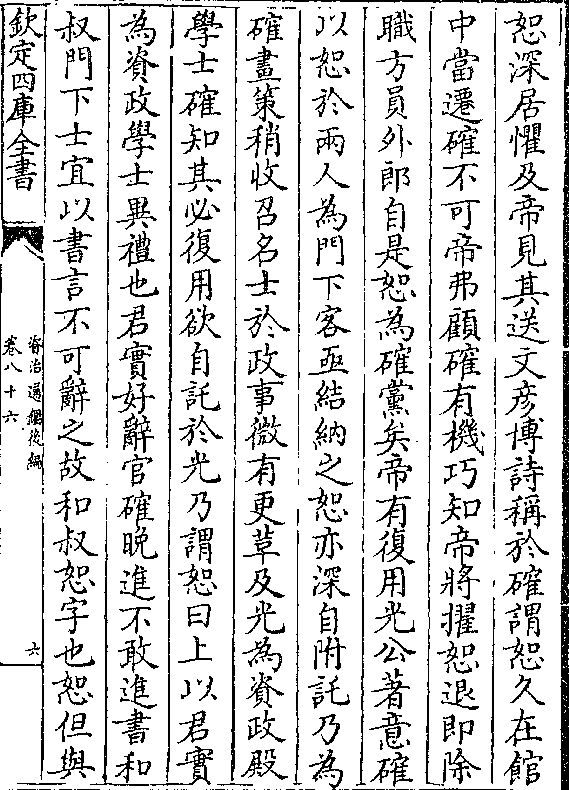 恕深居懼及帝見其送文彦博詩稱於確謂恕久在館
中當遷確不可帝弗顧確有機巧知帝將擢恕退即除
職方員外郎自是恕為確黨矣帝有復用光公著意確
以恕於兩人為門下客亟結納之恕亦深自附託乃為
確畫策稍收召名士於政事微有更革及光為資政殿
學士確知其必復用欲自託於光乃謂恕曰上以君實
為資政學士異禮也君實好辭官確晩進不敢進書和
叔門下士宜以書言不可辭之故和叔恕字也恕但與
欽定四庫全書
資治通鑑後編
卷八十六
六